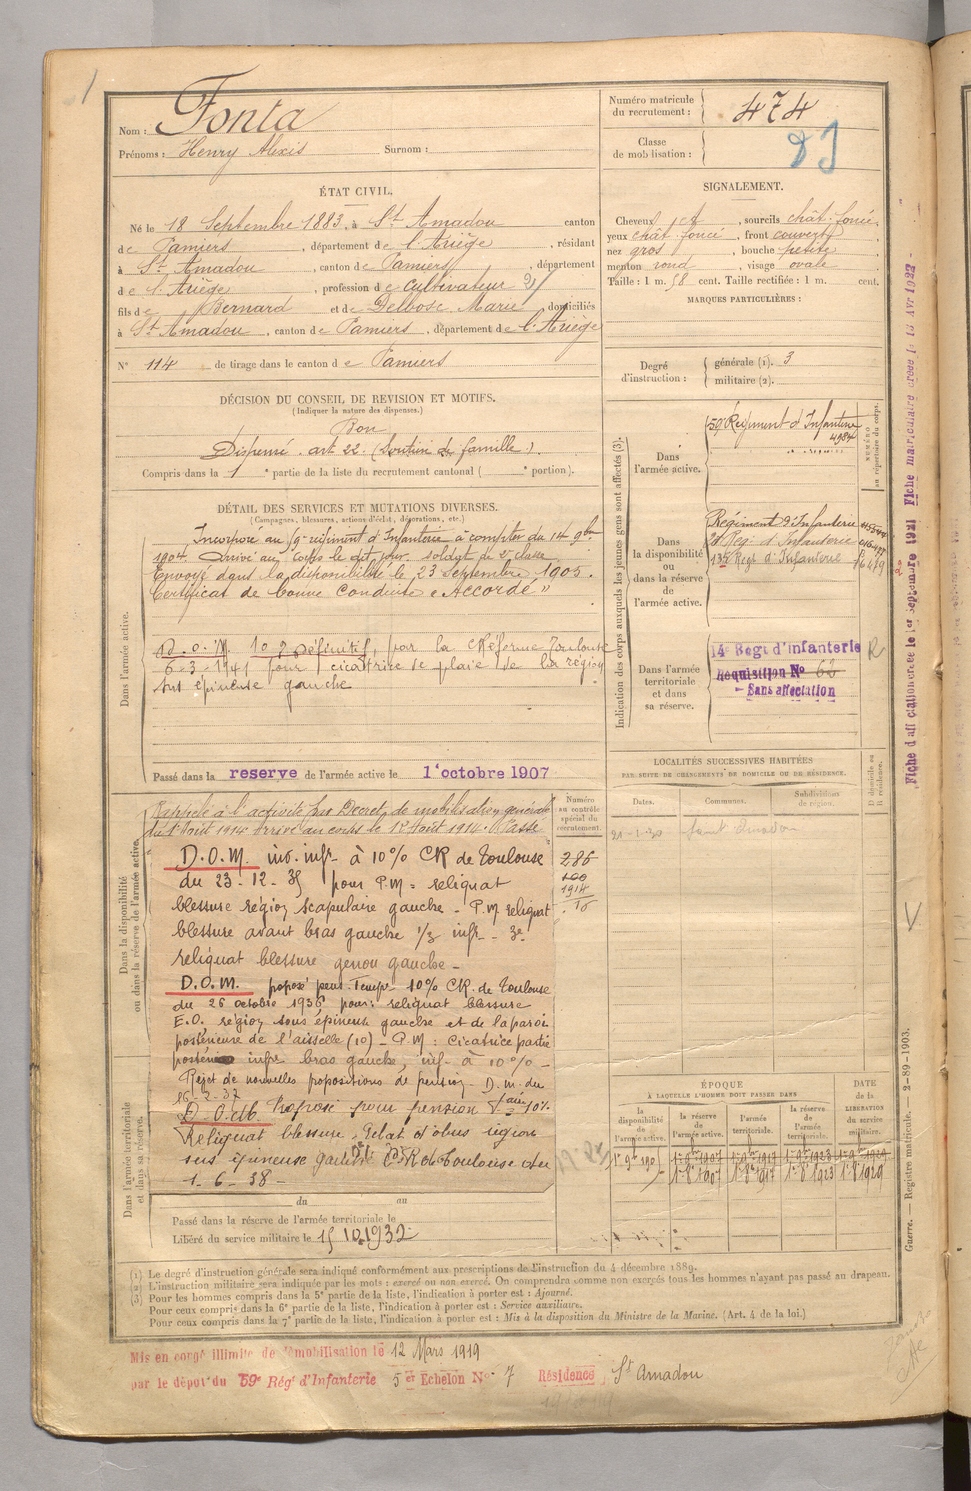 Nom : Fonta
Prénoms : Henry Alexis Surnom :
Numéro matricule du recrutement : 474
Classe de mobilisation :
ÉTAT CIVIL.
Né le 18 Septembre 1883, à St Amadou canton
de Pamiers, département de l'Ariège, résidant
à St Amadou, canton de Pamiers, département
de l'Ariège, profession de Cultivateur
fils de Bernard et de Delbosc Marie, domiciliés
à St Amadou, canton de Pamiers, département de l'Ariège
N° 114 de tirage dans le canton de Pamiers
SIGNALEMENT.
Cheveux et, sourcils chât. foncé,
yeux chât foncé, front couvert,
nez gros, bouche petite,
menton rond, visage ovale
Taille : 1 m. 58 cent. Taille rectifiée : 1 m. cent.
MARQUES PARTICULIÈRES :
Degré d'instruction : générale (1). 3
militaire (2).
DÉCISION DU CONSEIL DE REVISION ET MOTIFS.
(Indiquer la nature des dispenses.)
Bon
Dispensé art. 22. (Soutien de famille).
Compris dans la 1e partie de la liste du recrutement cantonal ( e portion).
DÉTAIL DES SERVICES ET MUTATIONS DIVERSES.
(Campagnes, blessures, actions d'éclat, décorations, etc.)
Dans l'armée active.
Incorporé au 59e régiment d'Infanterie à compter du 14 9bre
1904. Arrivé au corps le dit jour. soldat de 2e classe
Envoyé dans la disponibilité le 23 Septembre 1905.
Certificat de bonne Conduite "Accordé"
10 % définitif, par la Réforme Toulouse
6-3-1941 pour cicatrice de plaie de la région
sus épineuse gauche
Passé dans la reserve de l'armée active le 1er octobre 1907
Indication des corps auxquels les jeunes gens sont affectés (3).
NUMÉRO au répertoire du corps.
Dans l'armée active.
59e Régiment d'Infanterie
4984
Dans la disponibilité ou dans la réserve de l'armée active.
Régiment d'Infanterie
Reg. d'Infanterie
135 Regt d'Infanterie
Dans l'armée territoriale et dans sa réserve.
14e Regt d'infanterie R
Réquisition No 62
Sans affectation
Fiche matriculaire créée le 13 Avr 1922
LOCALITÉS SUCCESSIVES HABITÉES
PAR SUITE DE CHANGEMENTS DE DOMICILE OU DE RÉSIDENCE.
Dates. Communes. Subdivisions de région. D domicile ou R résidence.
21-1-30 Saint Amadou
Dans la disponibilité ou dans la réserve de l'armée active.
Numéro au contrôle spécial du recrutement.
286
1914
Rappelé à l'activité par Décret de mobilisation générale
du 1er Août 1914 arrivé au corps le 12 Août 1914. Passé
D.O.M. inv. infr à 10% CR de Toulouse
du 23-12-35 pour P.M = reliquat
blessure région scapulaire gauche - P.M reliquat
blessure avant bras gauche 1/3 infr - 3e
reliquat blessure genou gauche -
D.O.M. proposé pens. Tempre 10% CR. de Toulouse
du 26 octobre 1936 pour: reliquat blessure
E.O. région sous épineuse gauche et de la paroi
postérieure de l'aisselle (10) - P.M : cicatrice partie
infr bras gauche, inf. à 10% -
Rejet de nouvelles propositions de pension D.M. du
16-2-37
Proposé pour pension 10%
Reliquat blessure Eclat d'obus région
sus épineuse gauche CR de Toulouse du
1-6-38 -
Dans l'armée territoriale et dans sa réserve.
du au
Passé dans la réserve de l'armée territoriale le
Libéré du service militaire le 15 10 1932
ÉPOQUE
À LAQUELLE L'HOMME DOIT PASSER DANS
la disponibilité de l'armée active. la réserve de l'armée active. l'armée territoriale. la réserve de l'armée territoriale. DATE de la LIBÉRATION du service militaire.
1er 9bre 1905 1er 9bre 1907 1er 9bre 1917 1er 9bre 1923 1er 9bre 1929
1er 8bre 1907 1er 8bre 1917 1er 8bre 1923 1er 8bre 1929
Guerre. — Registre matricule. — 2-89-1903.
(1) Le degré d'instruction générale sera indiqué conformément aux prescriptions de l'instruction du 4 décembre 1889.
(2) L'instruction militaire sera indiquée par les mots : exercé ou non exercé. On comprendra comme non exercés tous les hommes n'ayant pas passé au drapeau.
(3) Pour les hommes compris dans la 5e partie de la liste, l'indication à porter est : Ajourné.
Pour ceux compris dans la 6e partie de la liste, l'indication à porter est : Service auxiliaire.
Pour ceux compris dans la 7e partie de la liste, l'indication à porter est : Mis à la disposition du Ministre de la Marine. (Art. 4 de la loi.)
Mis en congé illimité de démobilisation le 12 Mars 1919
par le dépôt du 59e Rég' d'Infanterie 5 Echelon No 7 Résidence St Amadou